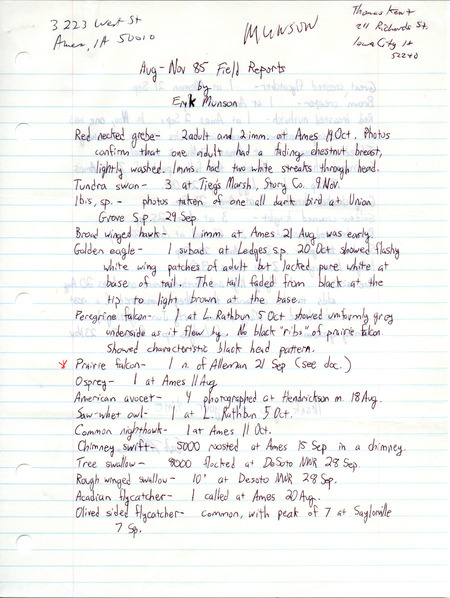 3223 West St
Ames, IA 50010
MUNSON
Thomas Kent
211 Richards St.
Iowa City IA
52240
Aug - Nov 85 Field Reports
by
Erik Munson
Red necked grebe- 2 adult and 2 imm. at Ames 19 Oct. Photos
confirm that one adult had a fading chestnut breast,
lightly washed. Imms. had two white streaks through head.
Tundra swan- 3 at Tjeg's Marsh, Story Co. 9 Nov.
Ibis, sp. - photos taken of one all dark bird at Union
Grove S.p. 29 Sep.
Broad winged hawk- 1 imm. at Ames 21 Aug was early.
Golden eagle- 1 subad. at Ledges s.p. 20 Oct showed flashy
white wing patches of adult but lacked pure white at
base of tail. The tail faded from black at the
tip to light brown at the base.
Peregrine falcon- 1 at L. Rathbun 5 Oct showed uniformly gray
underside as it flew by. No black "ribs" of prairie falcon.
Showed characteristic black head pattern.
Prairie falcon- 1 n. of Alleman 21 Sep (see doc.)
Osprey- 1 at Ames 11 Aug.
American avocet- 4 photographed at Hendrickson m. 18 Aug.
Saw-whet owl- 1 at L. Rathbun 5 Oct.
Common nighthawk- 1 at Ames 11 Oct.
Chimney swift- 5000 roosted at Ames 15 Sep in a chimney.
Tree swallow- 8000 flocked at DeSoto NWR 28 Sep.
Rough winged swallow- 10 at Desoto NWR 28 Sep.
Acadian flycatcher- 1 called at Ames 20 Aug.
Olived sided flycatcher- common, with peak of 7 at Saylorville
7 Sp.